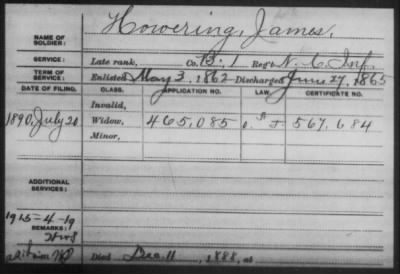 Howering, James,
NAME OF SOLDIER:
SERVICE: Late rank, Co. B. 1 Reg't N. C. Inf.
TERM OF SERVICE: Enlisted May 3, 1862 Discharged June 27, 1865
DATE OF FILING. CLASS. APPLICATION NO. LAW. CERTIFICATE NO.
Invalid,
1890, July 20 Widow, 465,085 567,684
Minor,
ADDITIONAL SERVICES:
1915-4-19
REMARKS:
Died Dec. 11, 1888, at